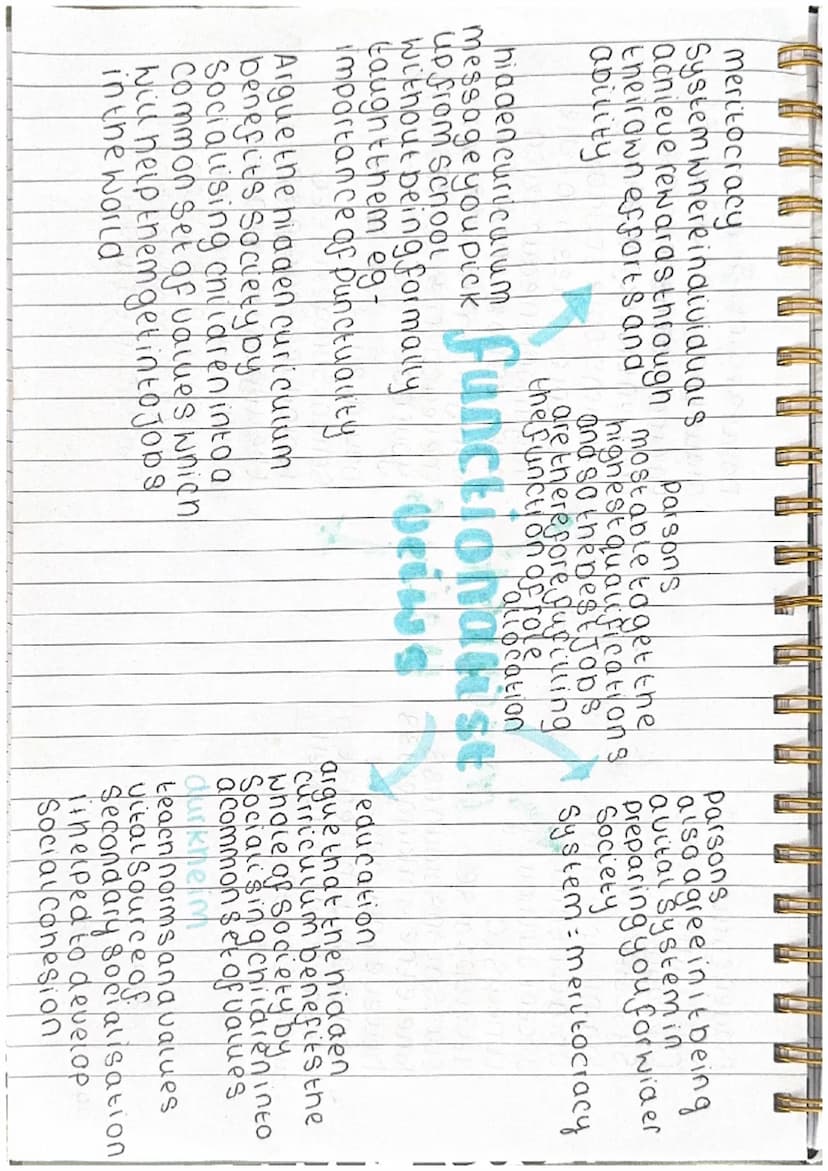 meritocracy
System where individuals
achieve rewards through
their own efforts and
ability
hidden curiculum
message you pick
up from school
without being formally
taught them eg-
importance of punctuality
Argue the hidden curiculum
benefits society by
Socialising children into a
common set of values which
will help them get into Jobs
in the world
parsons
most able to get the
highest qualifications
and so the best Jobs
are therefore fufilling
the function of role
allocation
functionalist
veiws
parsons
also agree in it being
a vital system in
preparing you for wider
Society
System: meritocracy
education
argue that the hidden
curriculum benefits the
whole of society by
Socialising children into
a common set of values
durkheim
teach norms and values
vital source of
Secondary socialisation
it helped to develop
Social cohesion